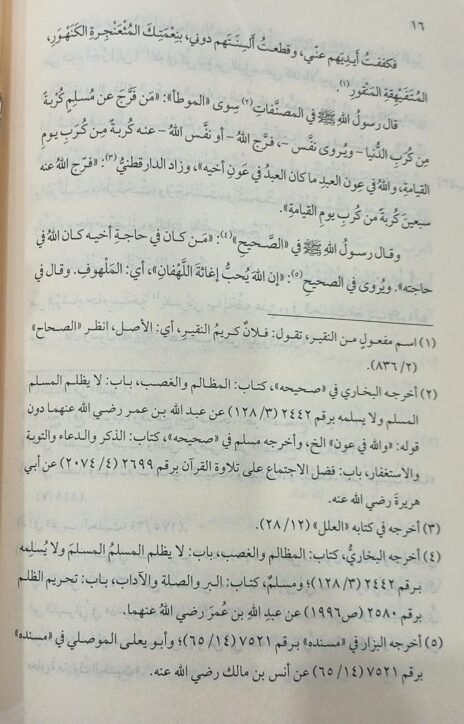 ١٦
فكففتُ أيديَهم عنّي، وقطعتُ ألسِنَتَهم دوني، بنِعْمَتِكَ المُثْعَنْجِرةِ الكَنَهْوَرِ،
المُتَفَيْهِقةِ المَنْقورِ(١)
قال رسولُ اللهِ ﷺ في المصنَّفاتِ(٢) سِوى «الموطأ»: «مَن فَرَّجَ عن مُسلِمٍ كُرْبةً
مِن كُرَبِ الدُّنيا - ويُروى نفَّس -، فرَّج اللهُ - أو نفَّس اللهُ - عنه كُربةً مِن كُرَبِ يومِ
القيامةِ، واللهُ في عونِ العبدِ ما كان العبدُ في عَونِ أخيه»، وزاد الدارقطنيُّ(٣): «فرّج اللهُ عنه
سبعينَ كُربةً من كُرَبِ يومِ القيامةِ».
وقال رسولُ اللهِ ﷺ في «الصَّحيحِ»(٤): «مَن كان في حاجةِ أخيه كان اللهُ في
حاجته». ويُروى في الصحيح(٥): «إن اللهَ يُحبُّ إغاثةَ اللَّهْفانِ»، أي: المَلْهوفِ. وقال في
(١) اسم مفعولٍ من النقير، تقول: فلانٌ كريمُ النقيرِ، أي: الأصل، انظر «الصحاح»
(٢/ ٨٣٦).
(٢) أخرجه البخاري في «صحيحه»، كتاب: المظالم والغصب، باب: لا يظلم المسلم
المسلم ولا يسلمه برقم ٢٤٤٢ (٣/ ١٢٨) عن عبد الله بن عمر رضي الله عنهما دون
قوله: «والله في عون» الخ، وأخرجه مسلم في «صحيحه»، كتاب: الذكر والدعاء والتوبة
والاستغفار، باب: فضل الاجتماع على تلاوة القرآن برقم ٢٦٩٩ (٤/ ٢٠٧٤) عن أبي
هريرة رضي الله عنه.
(٣) أخرجه في كتابه «العلل» (١٢/ ٢٨).
(٤) أخرجه البخاريُّ، كتاب: المظالم والغصب، باب: لا يظلم المسلمُ المسلمَ ولا يُسلِمه
برقم ٢٤٤٢ (٣/ ١٢٨)؛ ومسلمٌ، كتاب: البر والصلة والآداب، باب: تحريم الظلم
برقم ٢٥٨٠ (ص١٩٩٦) عن عبدِ اللهِ بن عُمرَ رضي اللهُ عنهما.
(٥) أخرجه البزار في «مسنده» برقم ٧٥٢١ (١٤/ ٦٥)؛ وأبو يعلى الموصلي في «مسنده»
برقم ٧٥٢١ (١٤/ ٦٥) عن أنس بن مالك رضي الله عنه.